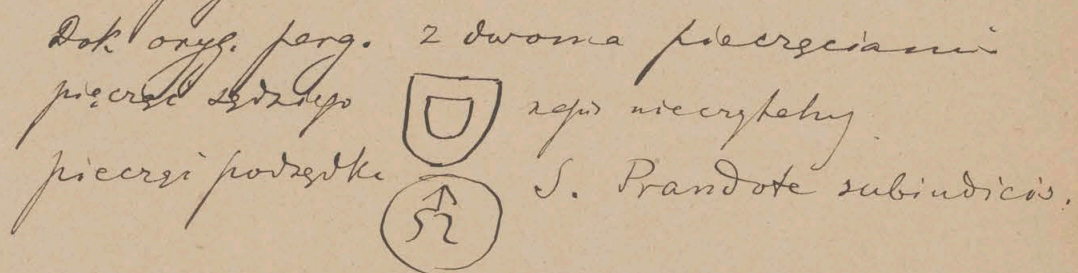 Dok. oryg. perg. z dwoma pieczęciami
pieczęć sędziego napis nieczytelny
pieczęć podsędka S. Prandote subiudicis.